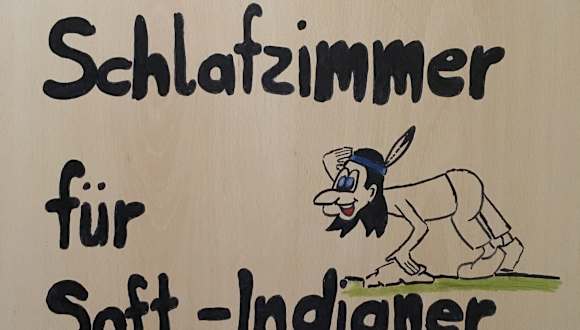 Schlafzimmer
für
Soft-Indianer